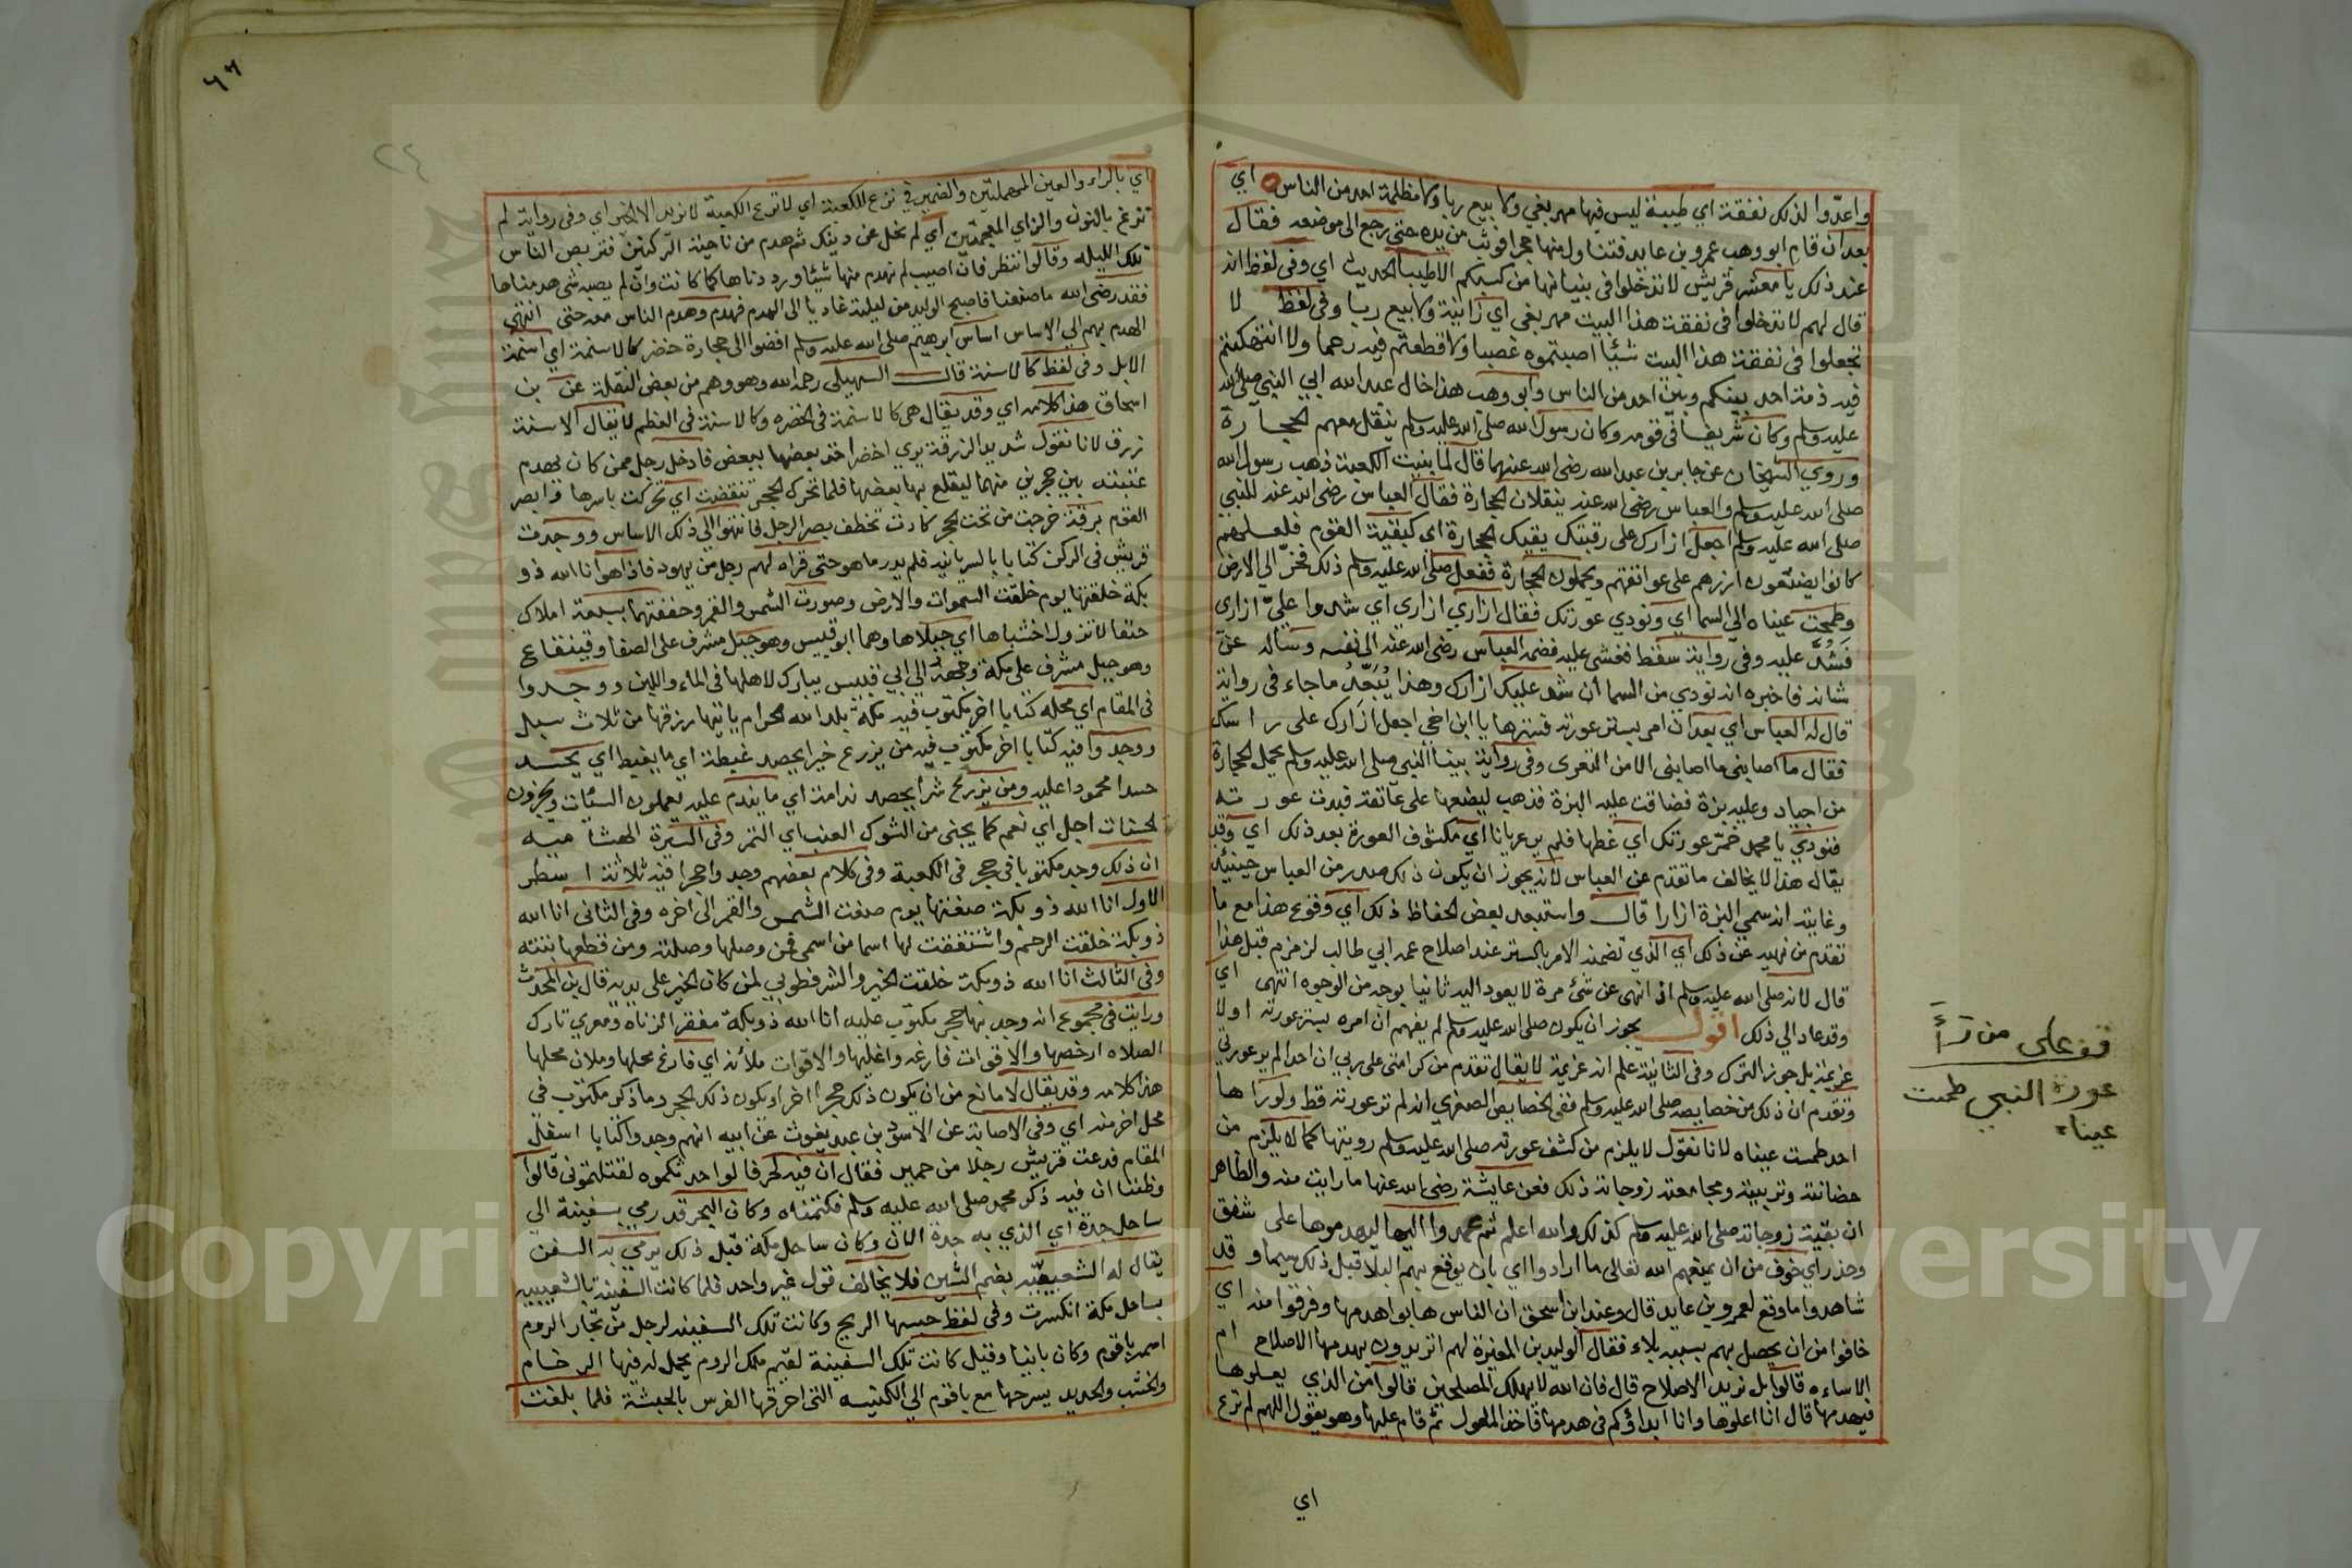 واعدّوا لذلك نفقة اي طيبة ليس فيها مهر بغي ولا بيع ربا ولا مظلمة احد من الناس اي
بعد ان قام ابو وهب عمرو بن عايد فتناول منها حجرا فوثب من يده حتى رجع الى موضعه فقال
عند ذلك يا معشر قريش لا تدخلوا في بنيانها من كسبكم الا طيبا الحديث اي وفي لفظ انه
قال لهم لا تدخلوا في نفقة هذا البيت مهر بغي اي زانية ولا بيع ربا وفي لفظ لا
تجعلوا في نفقة هذا البيت شيئا اصبتموه غصبا ولا قطعتم فيه رحما ولا انتهكتم
فيه ذمة احد بينكم وبين احد من الناس وابو وهب هذا خال عبد الله ابي النبي صلى الله
عليه وسلم وكان شريفا في قومه وكان رسول الله صلى الله عليه وسلم ينقل معهم الحجارة
وروي الشيخان عن جابر بن عبد الله رضي الله عنهما قال لما بنيت الكعبة ذهب رسول الله
صلى الله عليه وسلم والعباس رضي الله عنه ينقلان الحجارة فقال العباس رضي الله عنه للنبي
صلى الله عليه وسلم اجعل ازارك على رقبتك يقيك الحجارة اي كبقية القوم فلعلهم
كانوا يضعون ازرهم على عواتقهم ويحملون الحجارة ففعل صلى الله عليه وسلم ذلك فخر الي الارض
وطمحت عيناه الى السما اي ونودي عورتك فقال ازاري ازاري اي شدوا عليّ ازاري
فشُدّ عليه وفي رواية سقط فغشي عليه فضمه العباس رضي الله عنه الى نفسه وساله عن
شانه فاخبره انه نودي من السما ان شد عليك ازارك وهذا يُبَعِّدُ ما جاء في رواية
قال له العباس اي بعد ان امر بستر عورته فسترها يا ابن اخي اجعل ازارك على راسك
فقال ما اصابني ما اصابني الا من التعري وفي رواية بينا النبي صلى الله عليه وسلم يحمل الحجارة
من اجياد وعليه نمرة فضاقت عليه النمرة فذهب ليضعها على عاتقه فبدت عورته
فنودي يا محمد خمّر عورتك اي غطها فلم ير عريانا اي مكشوف العورة بعد ذلك اي وقد
يقال هذا لا يخالف ما تقدم عن العباس لانه يجوز ان يكون ذلك صدر من العباس حينئذ
وغايته انه سمي النمرة ازارا قال واستبعد بعض الحفاظ ذلك اي وقوع هذا مع ما
تقدم من نهيه عن ذلك اي الذي تضمنه الامر بالستر عند اصلاح عمه ابي طالب لزمزم قبل هذا
قال لانه صلى الله عليه وسلم اذا انهى عن شئ مرة لا يعود اليه ثانيا بوجه من الوجوه انتهى اي
وقد عاد الي ذلك اقول يجوز ان يكون صلى الله عليه وسلم لم يفهم ان امره بستر عورته اولا
عزيمة بل جوز الترك وفي الثانية علم انه عزيمة لا يقال تقدم من كرامتي على ربي ان احدا لم ير عورتي
وتقدم ان ذلك من خصايصه صلى الله عليه وسلم ففي الخصايص الصغرى انه لم تر عورته قط ولو راها
احد طمست عيناه لانا نقول لا يلزم من كشف عورته صلى الله عليه وسلم رويتها كما لا يلزم من
حضانته وتربيته ومجامعته زوجاته ذلك فعن عايشة رضي الله عنها ما رايت منه والظاهر
ان بقية زوجاته صلى الله عليه وسلم كذلك والله اعلم ثم عمدوا اليها ليهدموها على شفق
وحذر اي خوف من ان يمنعهم الله تعالى ما ارادوا اي بان يوقع بهم البلا قبل ذلك سيما وقد
شاهدوا ما وقع لعمرو بن عايد قال وعند ابن اسحق ان الناس هابوا هدمها وفرقوا منه اي
خافوا من ان يحصل بهم بسببه بلاء فقال الوليد بن المغيرة لهم اتريدون بهدمها الاصلاح ام
الاساءه قالوا بل نريد الاصلاح قال فان الله لا يهلك المصلحين قالوا من الذي يعلوها
فيهدمها قال انا اعلوها وانا ابداؤكم في هدمها فاخذ المعول ثم قام عليها وهو يقول اللهم لم ترع
اي
قف على من رأ
عورة النبي طمست
عيناه
٦٦
٢٤
اي بالراء والعين المهملتين والضمير في ترع للكعبة اي لا ترع الكعبة لا نريد الا الخير اي وفي رواية لم
نزغ بالنون والزاي المعجمتين اي لم نمل عن دينك ثم هدم من ناحية الركنين فتربص الناس
تلك الليله وقالوا ننتظر فان اصيب لم نهدم منها شيئا ورددناها كما كانت وان لم يصبه شي هدمناها
فقد رضي الله ما صنعنا فاصبح الوليد من ليلته غاديا الى الهدم فهدم وهدم الناس معه حتى انتهى
الهدم بهم الي الاساس اساس ابرهيم صلى الله عليه وسلم افضوا الى حجارة خضر كالاسنمة اي اسنمة
الابل وفي لفظ كالاسنة قال السهيلي رحمه الله وهو وهم من بعض النقلة عن بن
اسحاق هذا كلامه اي وقد يقال هي كالاسنمة في الخضره وكالاسنة في العظم لا يقال الاسنة
زرق لانا نقول شديد الزرقة يري اخضر اخذ بعضها ببعض فادخل رجل ممن كان يهدم
عتلته بين حجرين منهما ليقلع بها بعضها فلما تحرك الحجر تنقضت اي تحركت باسرها فابصر
القوم برقة خرجت من تحت الحجر كادت تخطف بصر الرجل فانتهوا الي ذلك الاساس ووجدت
قريش في الركن كتابا بالسريانية فلم يدر ما هو حتى قراه لهم رجل من يهود فاذا هو انا الله ذو
بكة خلقتها يوم خلقت السموات والارض وصورت الشمس والقمر وحففتهما بسبعة املاك
حنفا لا تزول اخشباها اي جبلاها وهما ابو قبيس وهو جبل مشرف على الصفا وقينقاع
وهو جبل مشرف على مكة وجهه الى ابي قبيس يبارك لاهلها في الماء واللبن ووجدوا
في المقام اي محله كتابا اخر مكتوب فيه مكة بلد الله الحرام ياتيها رزقها من ثلاث سبل
ووجدوا فيه كتابا اخر مكتوب فيه من يزرع خيرا يحصد غبطة اي ما يغبط اي يحسد
حسدا محمودا عليه ومن يزرع شرا يحصد ندامة اي ما يندم عليه يعملون السيّات ويجزون
الحسنات اجل اي نعم كما يجنى من الشوك العنب اي التمر وفي السيرة الهشاميه
ان ذلك وجد مكتوبا في حجر في الكعبة وفي كلام بعضهم وجدوا حجرا فيه ثلاثة اسطر
الاول انا الله ذو بكة صنعتها يوم صنعت الشمس والقمر الى اخره وفي الثاني انا الله
ذو بكة خلقت الرحم واشتققت لها اسما من اسمى فمن وصلها وصلته ومن قطعها بتته
وفي الثالث انا الله ذو بكة خلقت الخير والشر فطوبي لمن كان الخير على يديه قال بن المحدث
ورايت في مجموع انه وجد بها حجر مكتوب عليه انا الله ذو بكة مفقر الزناه ومعري تارك
الصلاه ارخصها والاقوات فارغه واغليها والاقوات ملآنه اي فارغ محلها وملان محلها
هذا كلامه وقد يقال لا مانع من ان يكون ذلك حجرا اخر او يكون ذلك الحجر وما ذكر مكتوب في
محل اخر منه اي وفي الاصابة عن الاسود بن عبد يغوث عن ابيه انهم وجدوا كتابا اسفل
المقام فدعت قريش رجلا من حمير فقال ان فيه لحرفا لو احدثكموه لقتلتموني قالوا
وظننا ان فيه ذكر محمد صلى الله عليه وسلم فكتمناه وكان البحر قد رمي بسفينة الي
ساحل جدة اي الذي به جدة الان وكان ساحل مكة قبل ذلك يرمي به السفن
يقال له الشعيبيه بضم الشين فلا يخالف قول غير واحد فلما كانت السفينة بالشعيبيه
بساحل مكة انكسرت وفي لفظ حبسها الريح وكانت تلك السفينه لرجل من تجار الروم
اسمه ياقوم وكان بانيا وقيل كانت تلك السفينة لقيصر ملك الروم يحمل له فيها الرخام
والخشب والحديد يسرحها مع باقوم الي الكنيسه التي احرقها الفرس بالحبشة فلما بلغت
Copyright © King Saud University